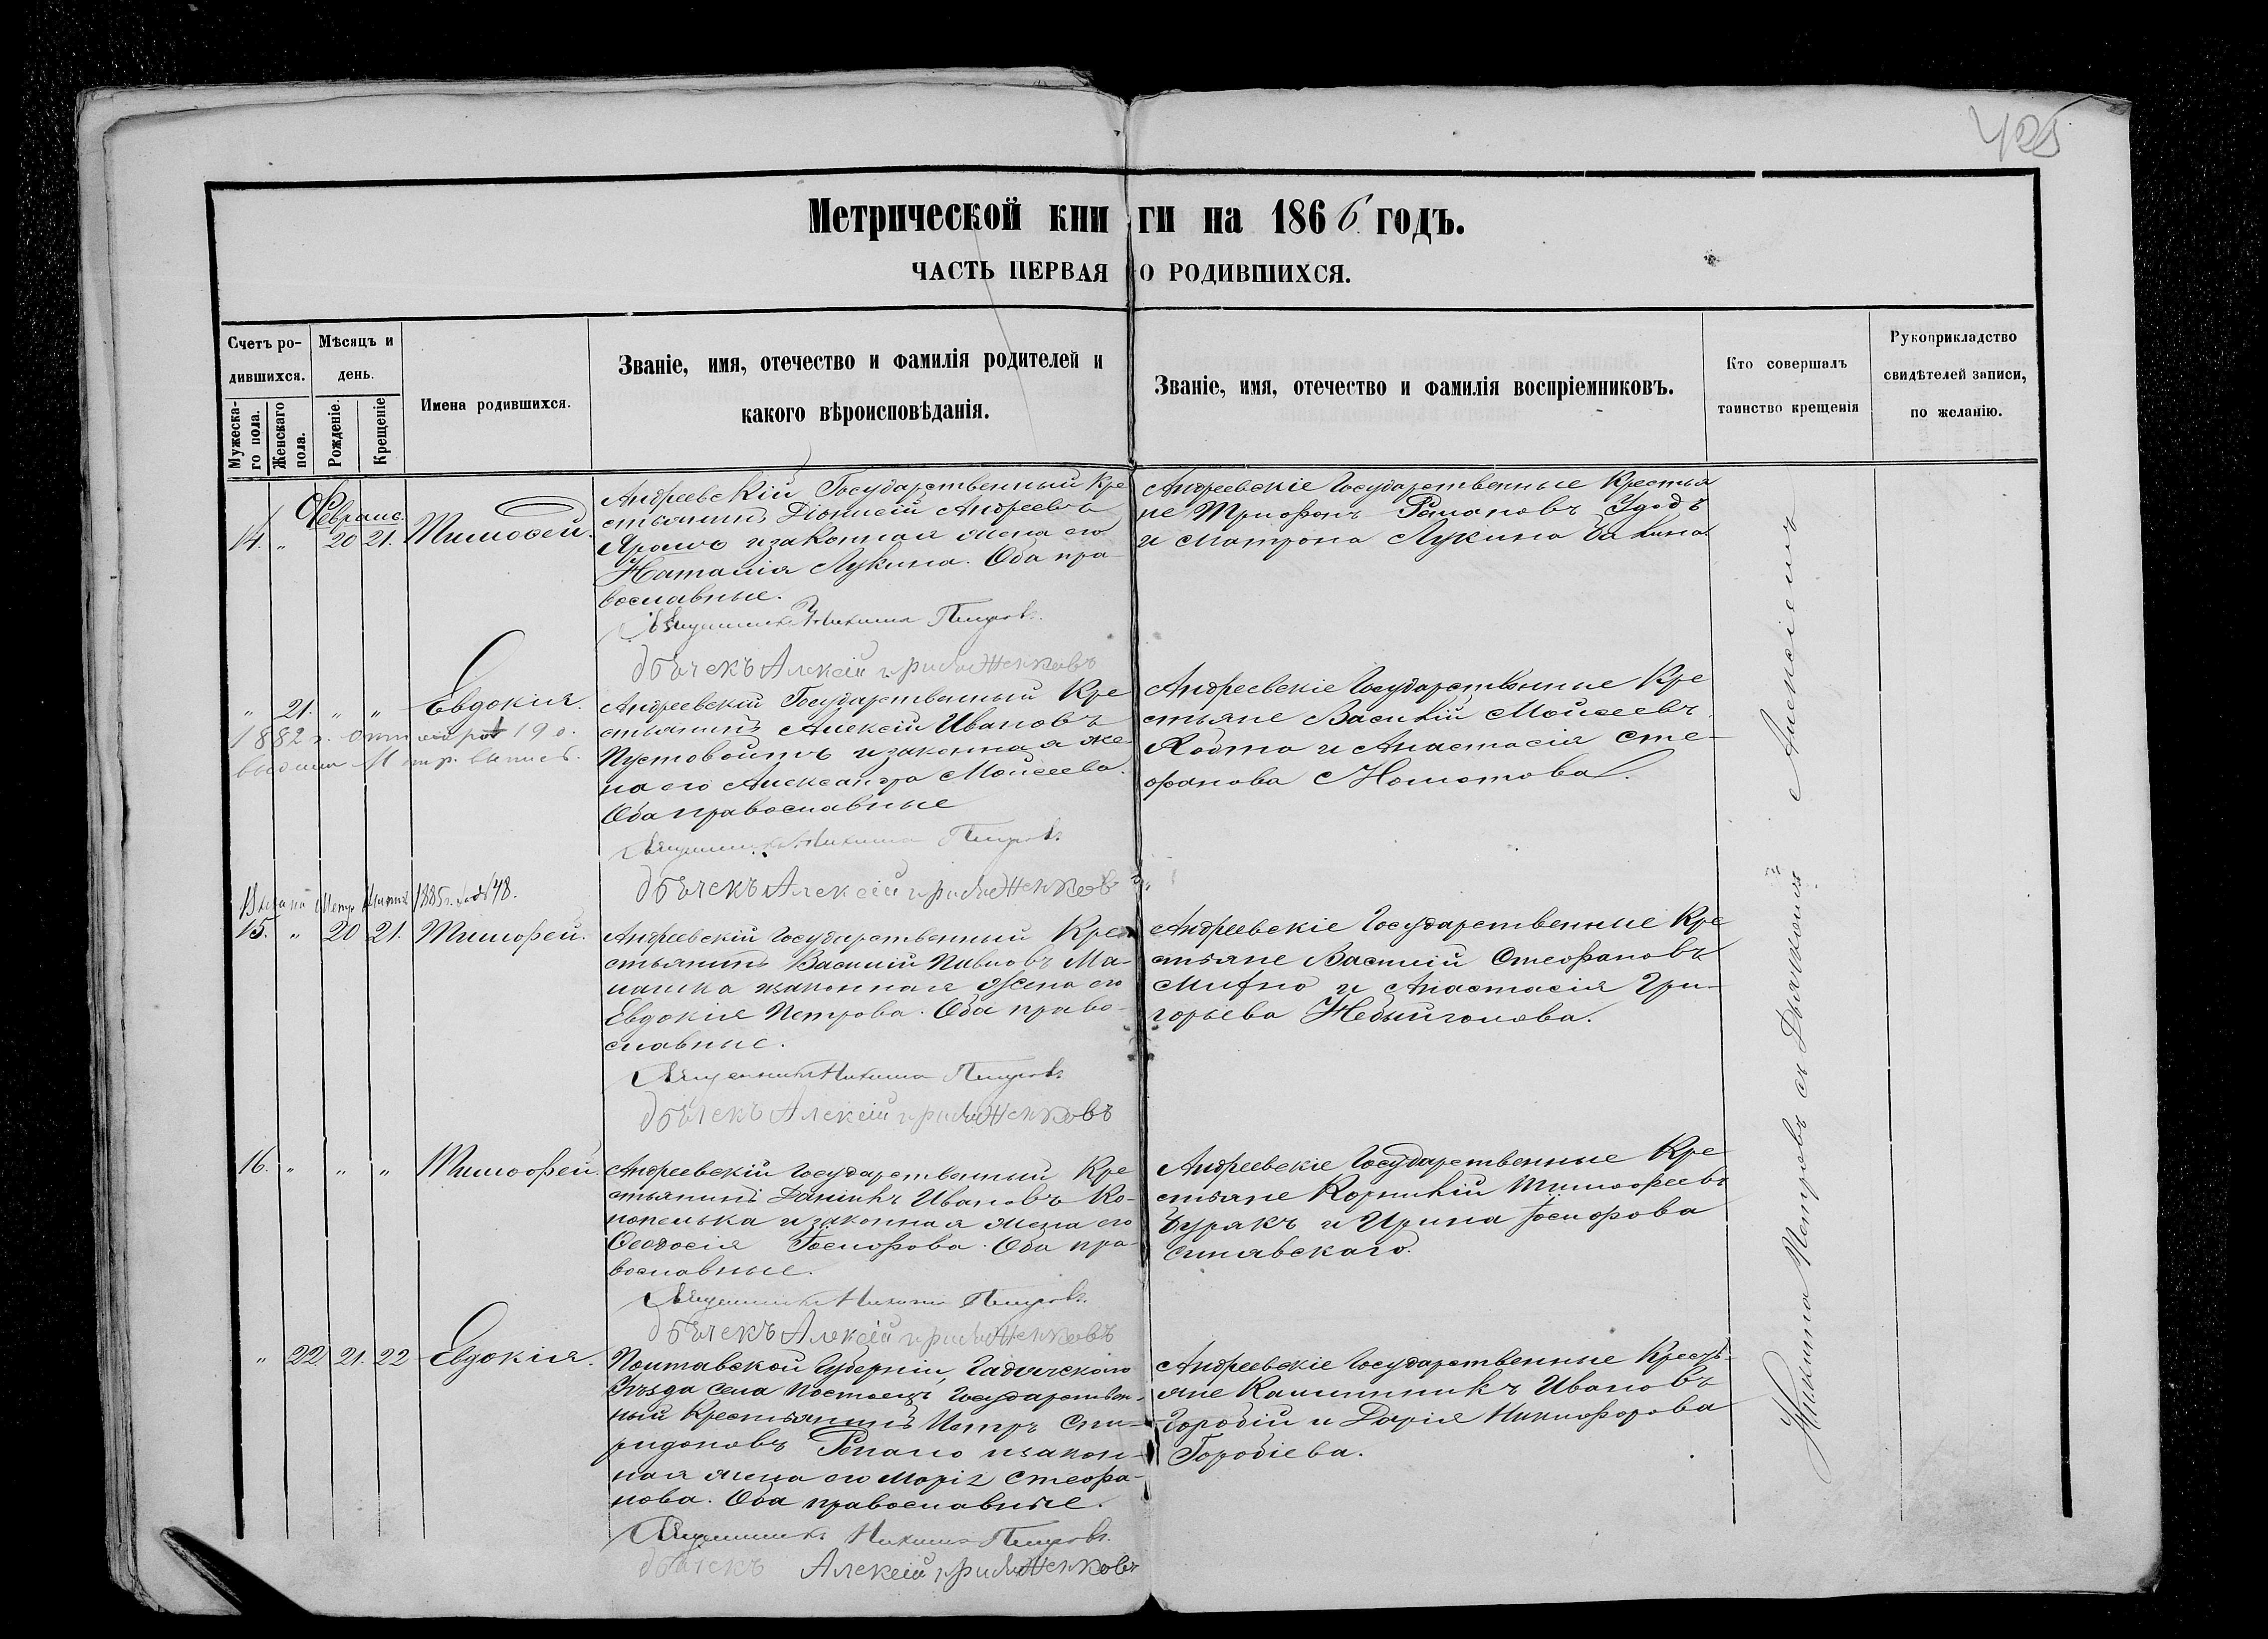 425
Метрической книги на 1866 годъ.
ЧАСТЬ ПЕРВАЯ О РОДИВШИХСЯ.
Счетъ ро-
дившихся.
Мужеска-
го пола.
Женскаго
пола.
Мѣсяцъ и
день.
Рожденіе.
Крещеніе
Имена родившихся.
Званіе, имя, отечество и фамилія родителей и
какого вѣроисповѣданія.
Званіе, имя, отечество и фамилія воспріемниковъ.
Кто совершалъ
таинство крещенія
Рукоприкладство
свидѣтелей записи,
по желанію.
14. " 20 21. Тимоѳей.
Андреевскій Государственный Кре
стьянинъ Діонисій Андреевъ
и законная жена его
Наталія Лукина. Оба пра-
вославные.
Священникъ Никита Петровъ.
Алексій
Андреевскіе Государственные Крестья
не Трифонъ Романовъ Удодъ
и Матрона Лукина
" 21. " " Евдокія.
1882 г.
Андреевскій Государственный Кре
стьянинъ Алексій Ивановъ
Пустовойтъ и законная же-
на его Александра Моисеева.
Оба православные
Священникъ Никита Петровъ.
Алексій
Андреевскіе Государственные Кре
стьяне Василій Моисеевъ
и Анастасія Сте-
фанова
1885 г.
15. " 20 21. Тимофей.
Андреевскій Государственный Кре
стьянинъ Василій Павловъ Ма-
законная жена его
Евдокія Петрова. Оба право-
славные.
Священникъ Никита Петровъ
Алексій
Андреевскіе Государственные Кре
стьяне Василій Стефановъ
и Анастасія Гри-
горьева
16. " " " Тимофей.
Андреевскій Государственный Кре
стьянинъ Даніилъ Ивановъ Ко-
нопелька и законная жена его
Ѳеодосія Іосифова. Оба пра-
вославные.
Священникъ Никита Петровъ.
Алексій
Андреевскіе Государственные Кре
стьяне Корнилій Тимофеевъ
Бурякъ и Ирина Іосифова
Синявскаго.
" 22 21. 22 Евдокія.
Полтавской Губерніи, Гадячскаго
Уѣзда села Государствен-
ный Крестьянинъ Петръ Спи-
ридоновъ и закон-
ная жена его Марія Стефа-
нова. Оба православные.
Священникъ Никита Петровъ.
Алексій
Андреевскіе Государственные Кресть-
яне Каллиникъ Ивановъ
Горобій и Дарія Никифорова
Горобіева.
Никита Петровъ съ Дьячкомъ Алексіемъ